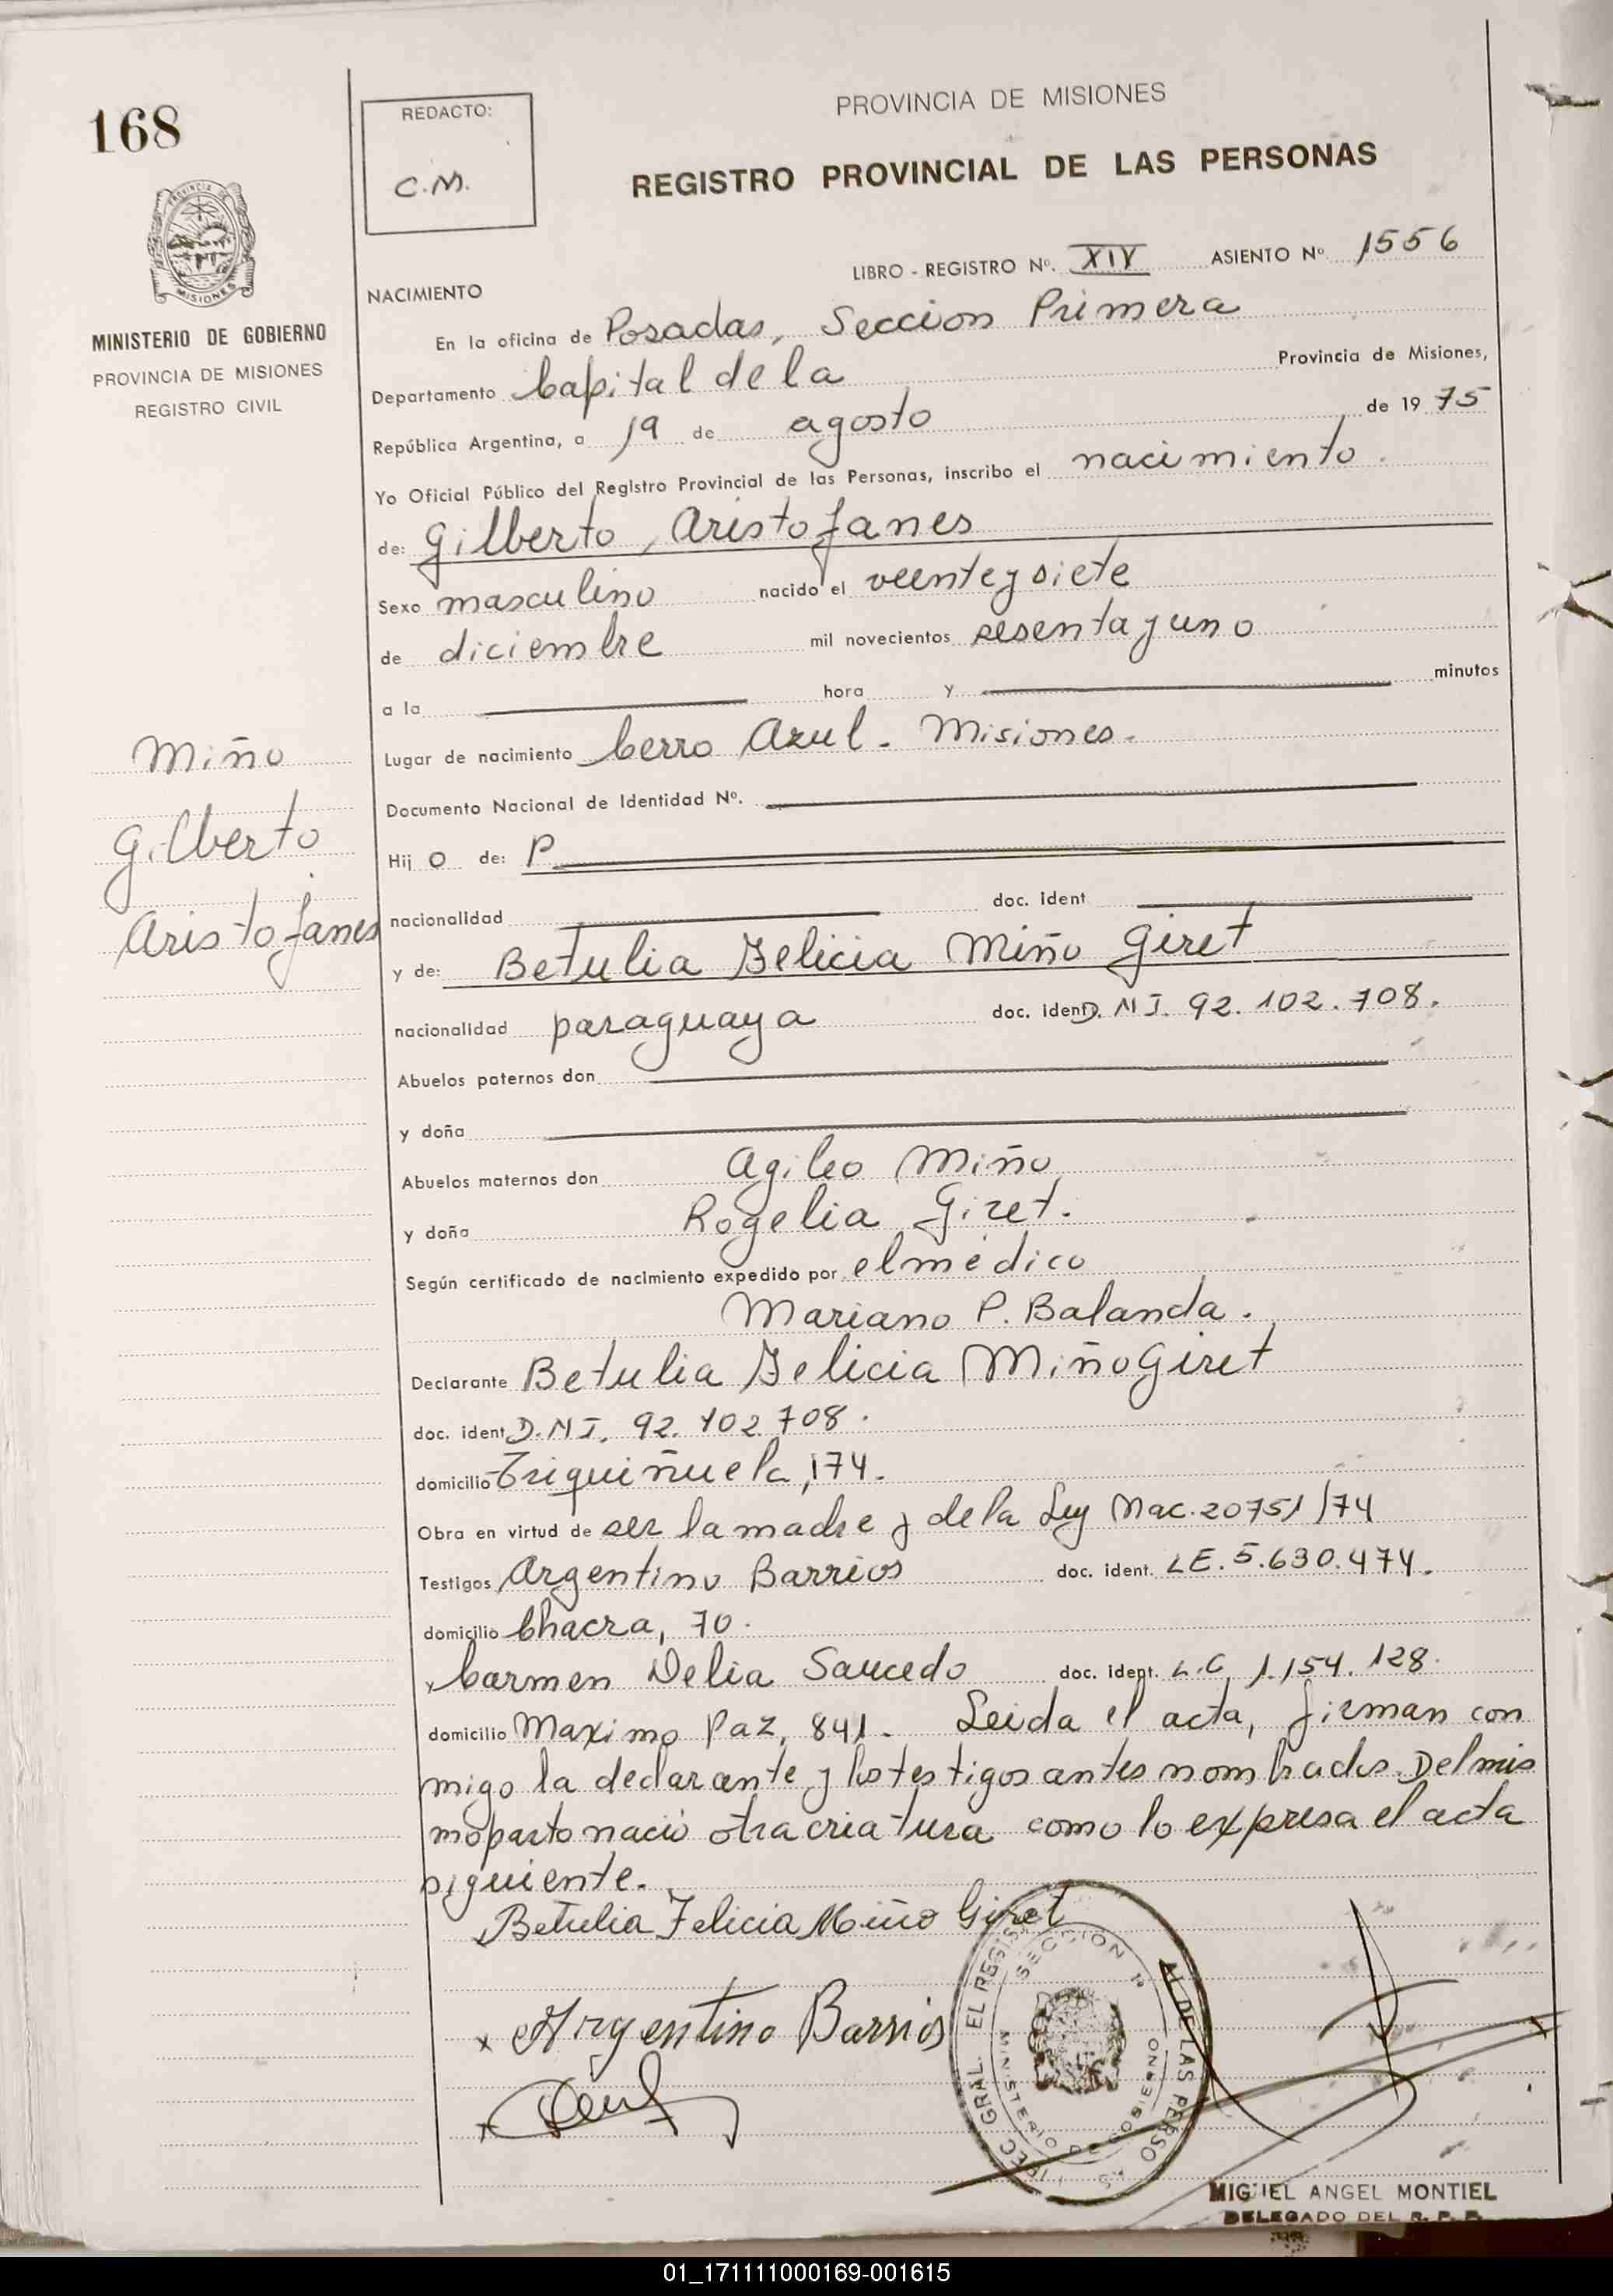 168
REDACTO:
C.M.
PROVINCIA DE MISIONES
REGISTRO PROVINCIAL DE LAS PERSONAS
PROVINCIA DE
MISIONES
MINISTERIO DE GOBIERNO
PROVINCIA DE MISIONES
REGISTRO CIVIL
LIBRO - REGISTRO Nº. XIV ASIENTO Nº 1556
NACIMIENTO
En la oficina de Posadas, Seccion Primera
Departamento Capital de la Provincia de Misiones,
República Argentina, a 19 de agosto de 1975
Yo Oficial Público del Registro Provincial de las Personas, inscribo el nacimiento.
de: Gilberto, Aristofanes
Sexo masculino nacido el veinteysiete
de diciembre mil novecientos sesentayuno
a la hora y minutos
Lugar de nacimiento Cerro Azul - Misiones.
Documento Nacional de Identidad Nº.
Miño
Gilberto
Aristofanes
Hij o de: P
nacionalidad doc. ident
y de: Betulia Felicia Miño Giret
nacionalidad paraguaya doc. ident D.N.I. 92.102.708.
Abuelos paternos don
y doña
Abuelos maternos don Agileo Miño
y doña Rogelia Giret.
Según certificado de nacimiento expedido por el médico
Mariano P. Balanda.
Declarante Betulia Felicia Miño Giret
doc. ident D.N.I. 92.102.708.
domicilio Triquiñuela, 174.
Obra en virtud de ser la madre y de la Ley Nac. 20751/74
Testigos Argentino Barrios doc. ident. L.E. 5.630.474.
domicilio Chacra, 70.
y Carmen Delia Saucedo doc. ident. L.C. 1.154.128.
domicilio Maximo Paz, 841. Leida el acta, firman con
migo la declarante y los testigos antes nombrados. Del mis
mo parto nació otra criatura como lo expresa el acta
siguiente.
Betulia Felicia Miño Giret
x Argentino Barrios
SECCION 1ª
MINISTERIO DE GOBIERNO
MIGUEL ANGEL MONTIEL
DELEGADO DEL R. P. P.
01_171111000169-001615